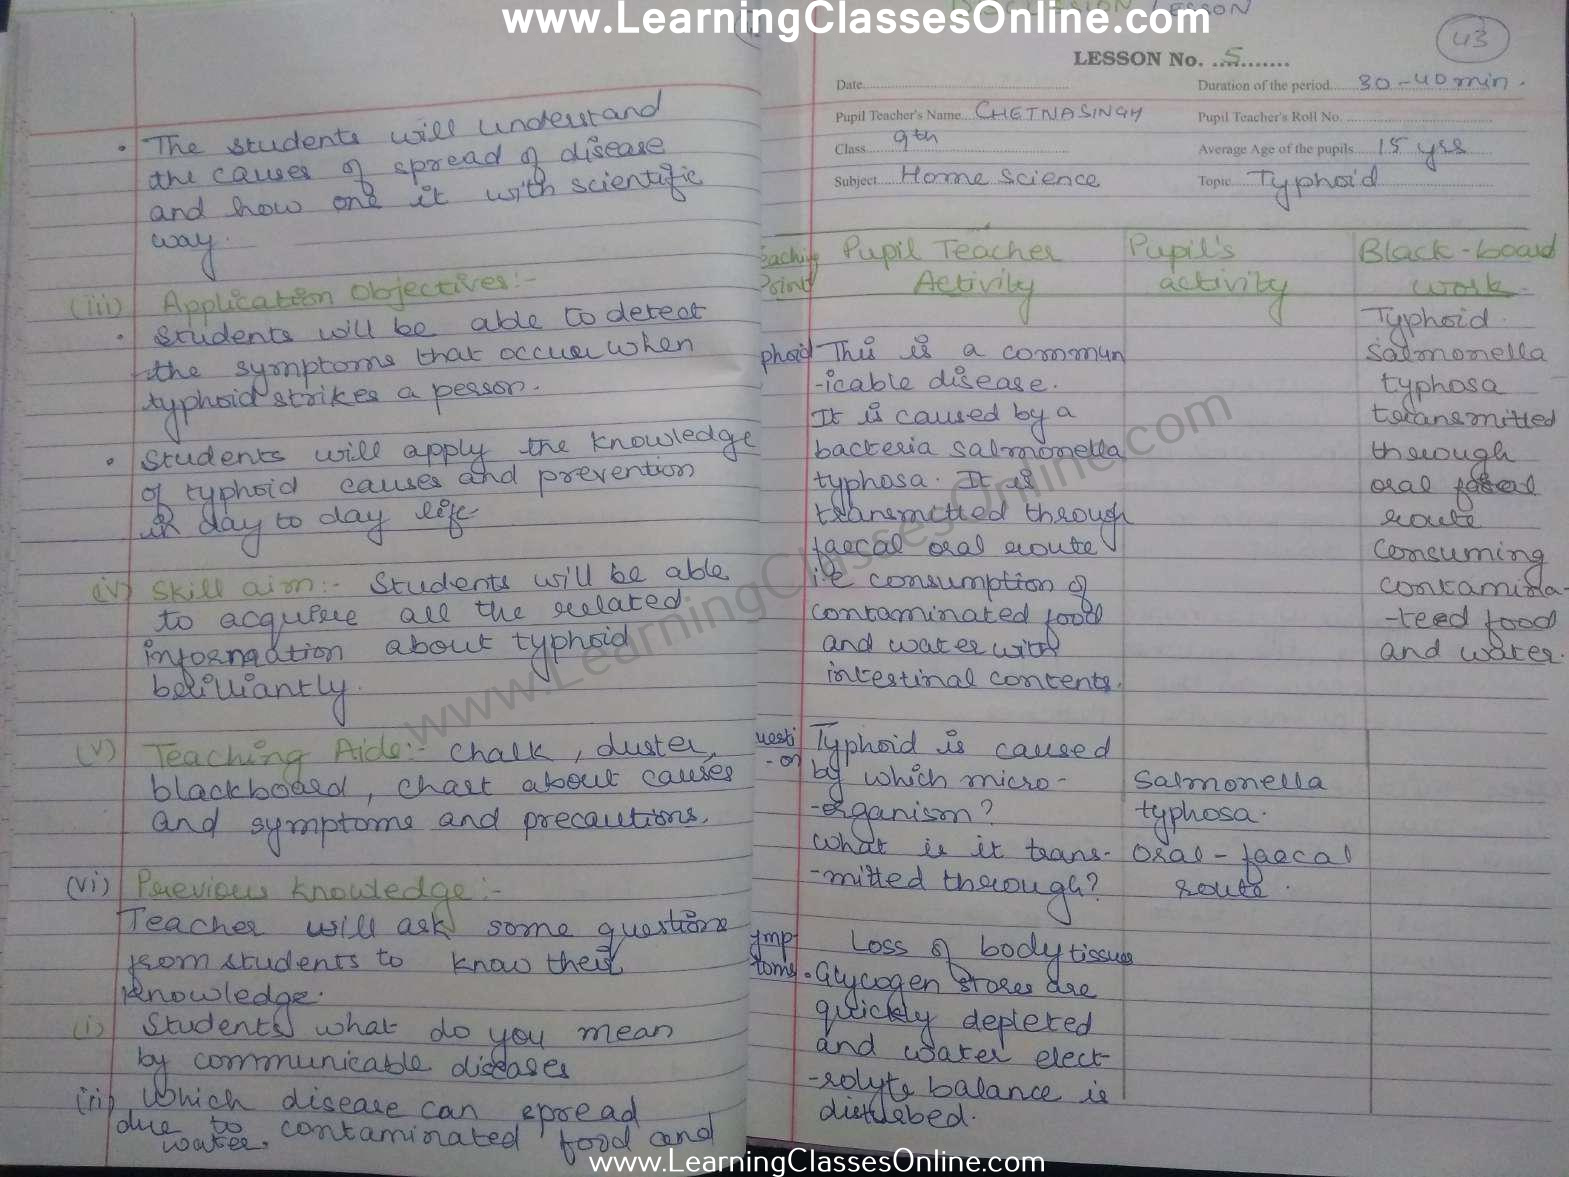 www.LearningClassesOnline.com
The students will understand
the causes of spread of disease
and how one it with scientific
way.
(iii) Application Objectives:-
Students will be able to detect
the symptoms that occur when
typhoid strikes a person.
Students will apply the knowledge
of typhoid causes and prevention
in day to day life
(iv) Skill aim:- Students will be able
to acquire all the related
information about typhoid
brilliantly.
(v) Teaching Aids:- Chalk, duster,
blackboard, chart about causes
and symptoms and precautions.
(vi) Previous knowledge:-
Teacher will ask some questions
from students to know their
knowledge.
(i) Students what do you mean
by communicable diseases
(ii) Which disease can spread
due to contaminated food and
water.
LESSON
43
LESSON No. 5
Date
Duration of the period 30-40 min.
Pupil Teacher's Name CHETNA SINGH
Pupil Teacher's Roll No.
Class 9th
Average Age of the pupils 15 yrs
Subject Home Science
Topic Typhoid
eaching Pupil Teacher Pupil's Black-board
Point Activity activity work
Typhoid
phoid This is a commun Salmonella
-icable disease. typhosa
It is caused by a transmitted
bacteria salmonella through
typhosa. It is oral faecal
transmitted through route
faecal oral route consuming
i.e consumption of contamina-
contaminated food -teed food
and water with and water.
intestinal contents.
uesti Typhoid is caused
-on by which micro- Salmonella
-organism? typhosa.
What is it trans- Oral-faecal
-mitted through? route.
ymp Loss of body tissues
toms Glycogen stores are
quickly depleted
and water elect-
-rolyte balance is
disturbed.
www.LearningClassesOnline.com
www.LearningClassesOnline.com